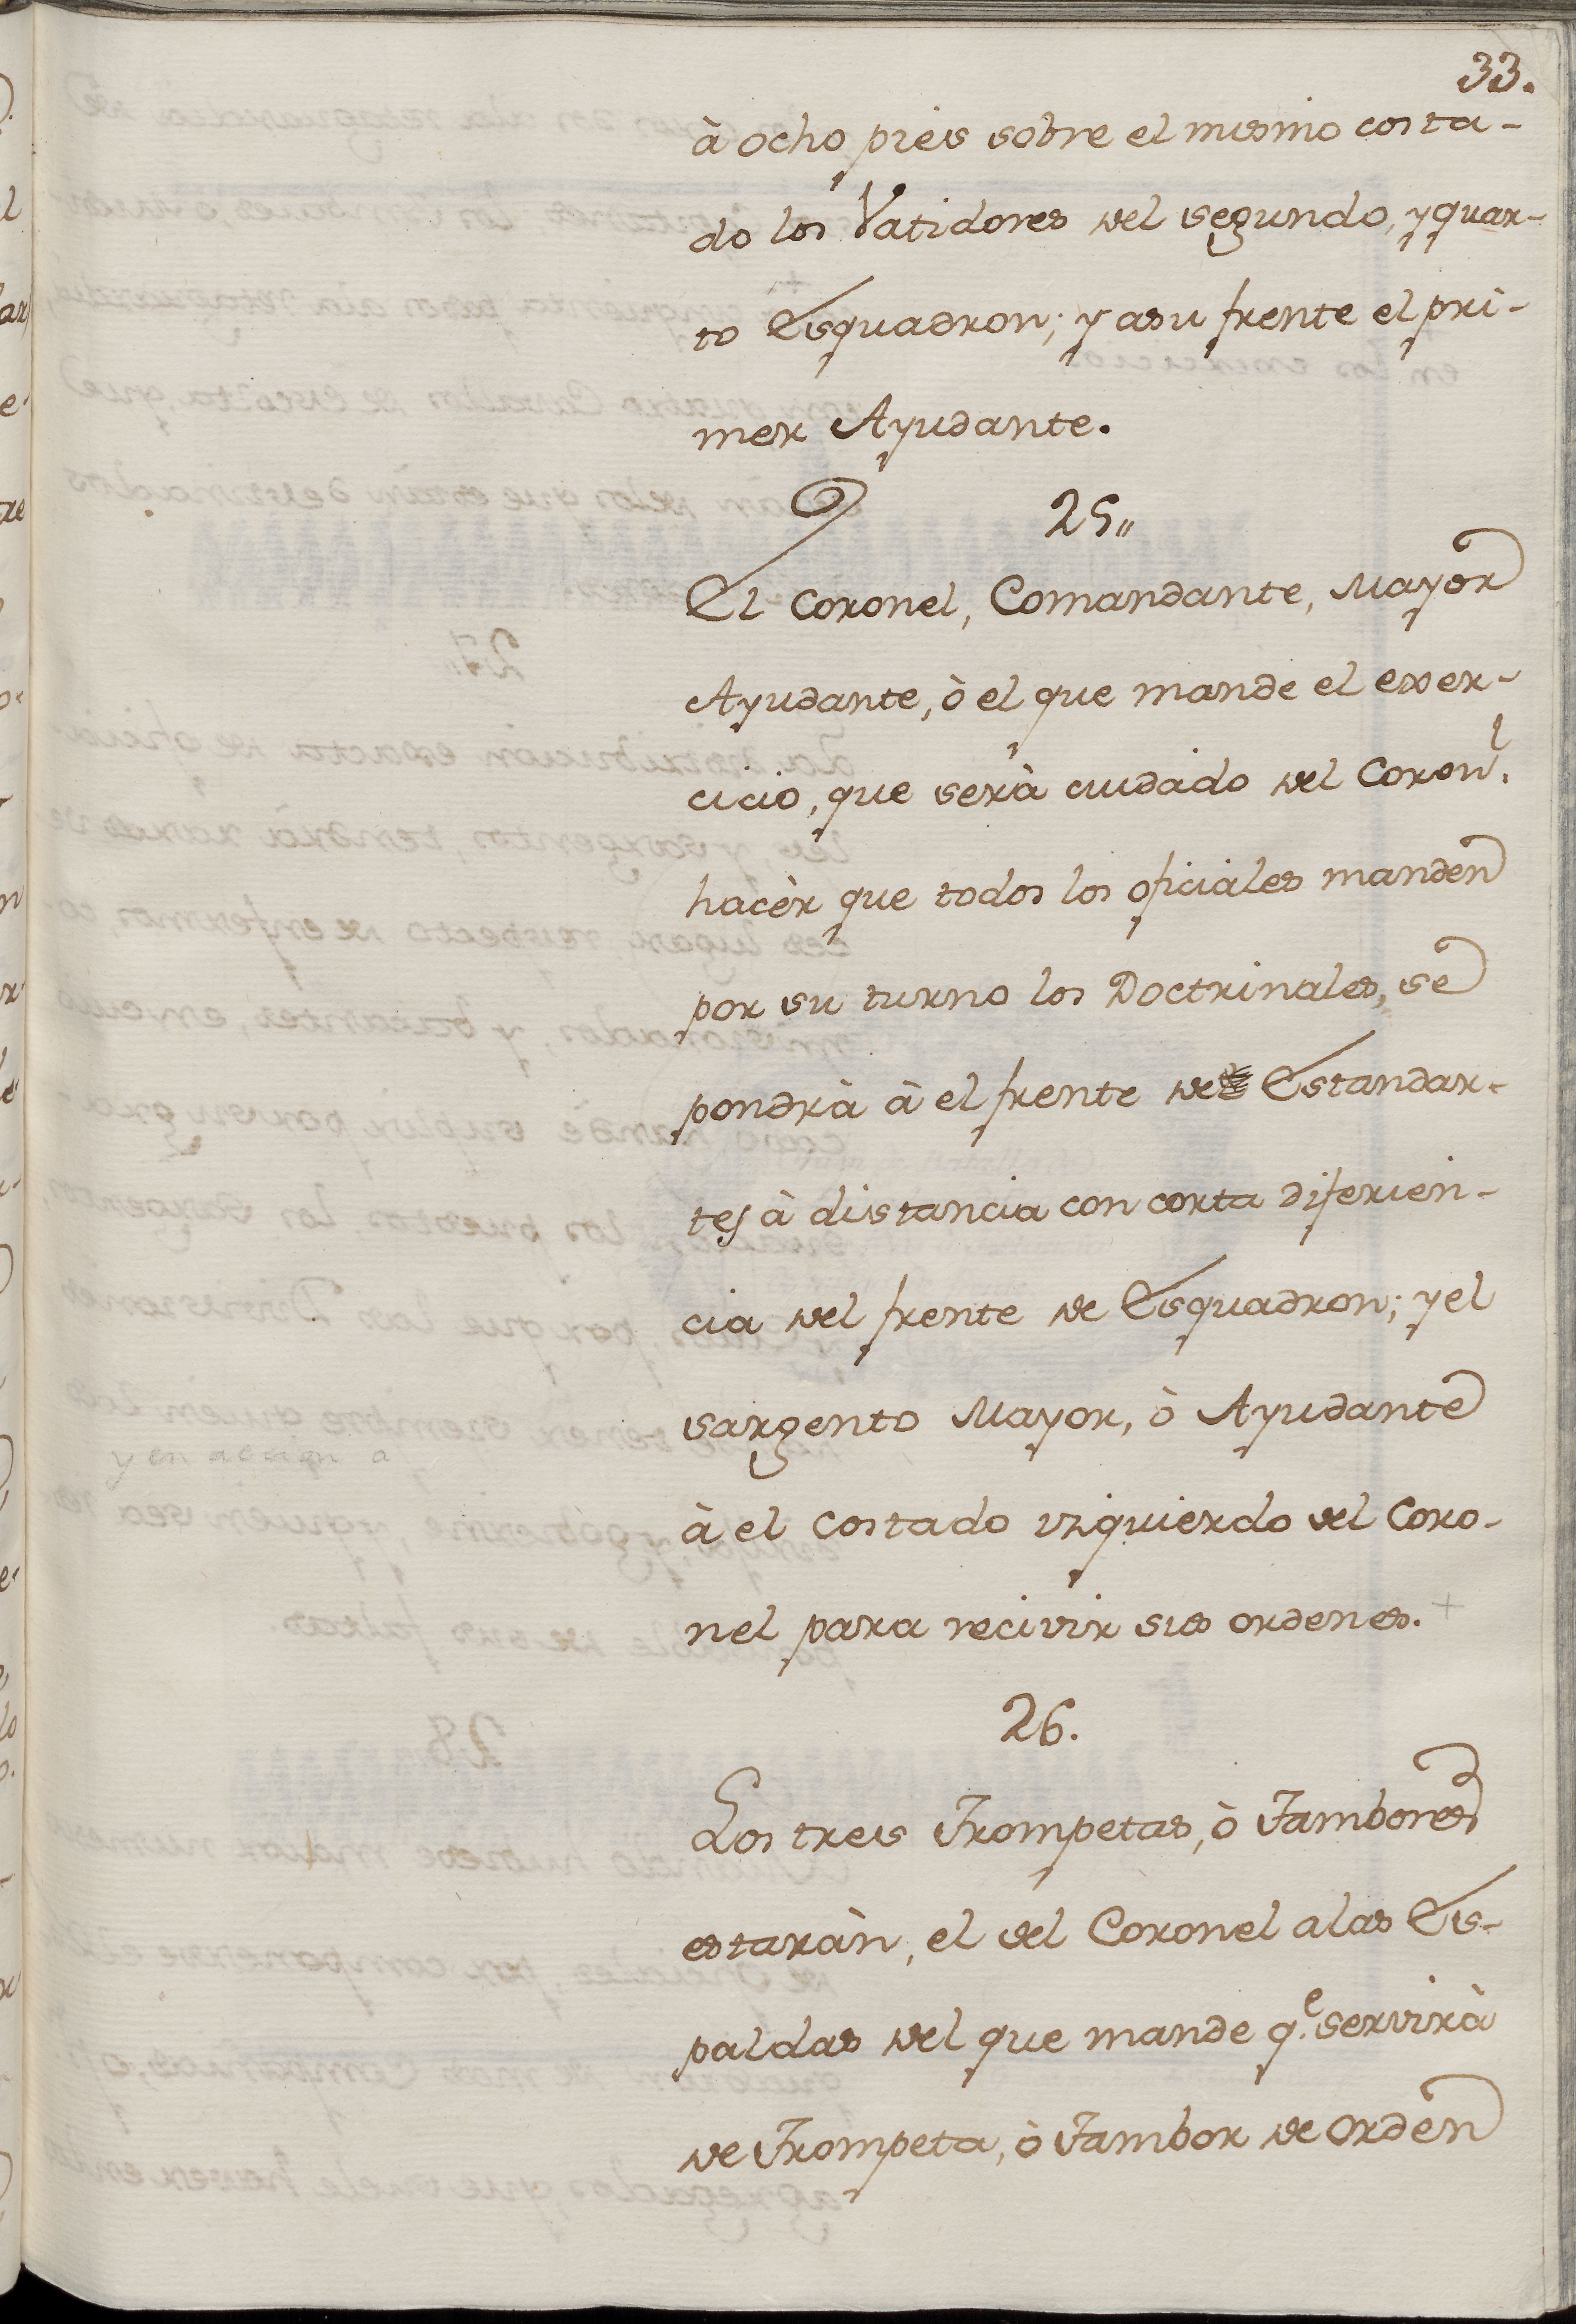 33.
à ocho pies sobre el mismo costa-
do los Vatidores del segundo, y quar-
to Esquadron; y asu frente el pri-
mer Ayudante.
25,,
El Coronel, Comandante, Mayor
Ayudante, ò el que mande el exer-
cicio, que serà cuidado del Coron.l
hacèr que todos los oficiales manden
por su turno los Doctrinales, se
pondrà à el frente de Estandar-
tes à distancia con corta diferien-
cia del frente de Esquadron; y el
sargento Mayor, ò Ayudante
à el costado izquierdo del Coro-
nel para recivir sus ordenes. +
26.
Los tres Trompetas, ò Tambores
estaràn, el del Coronel a las Es-
paldas del que mande q.e servirà
de Trompeta, ò Tambor de Orden